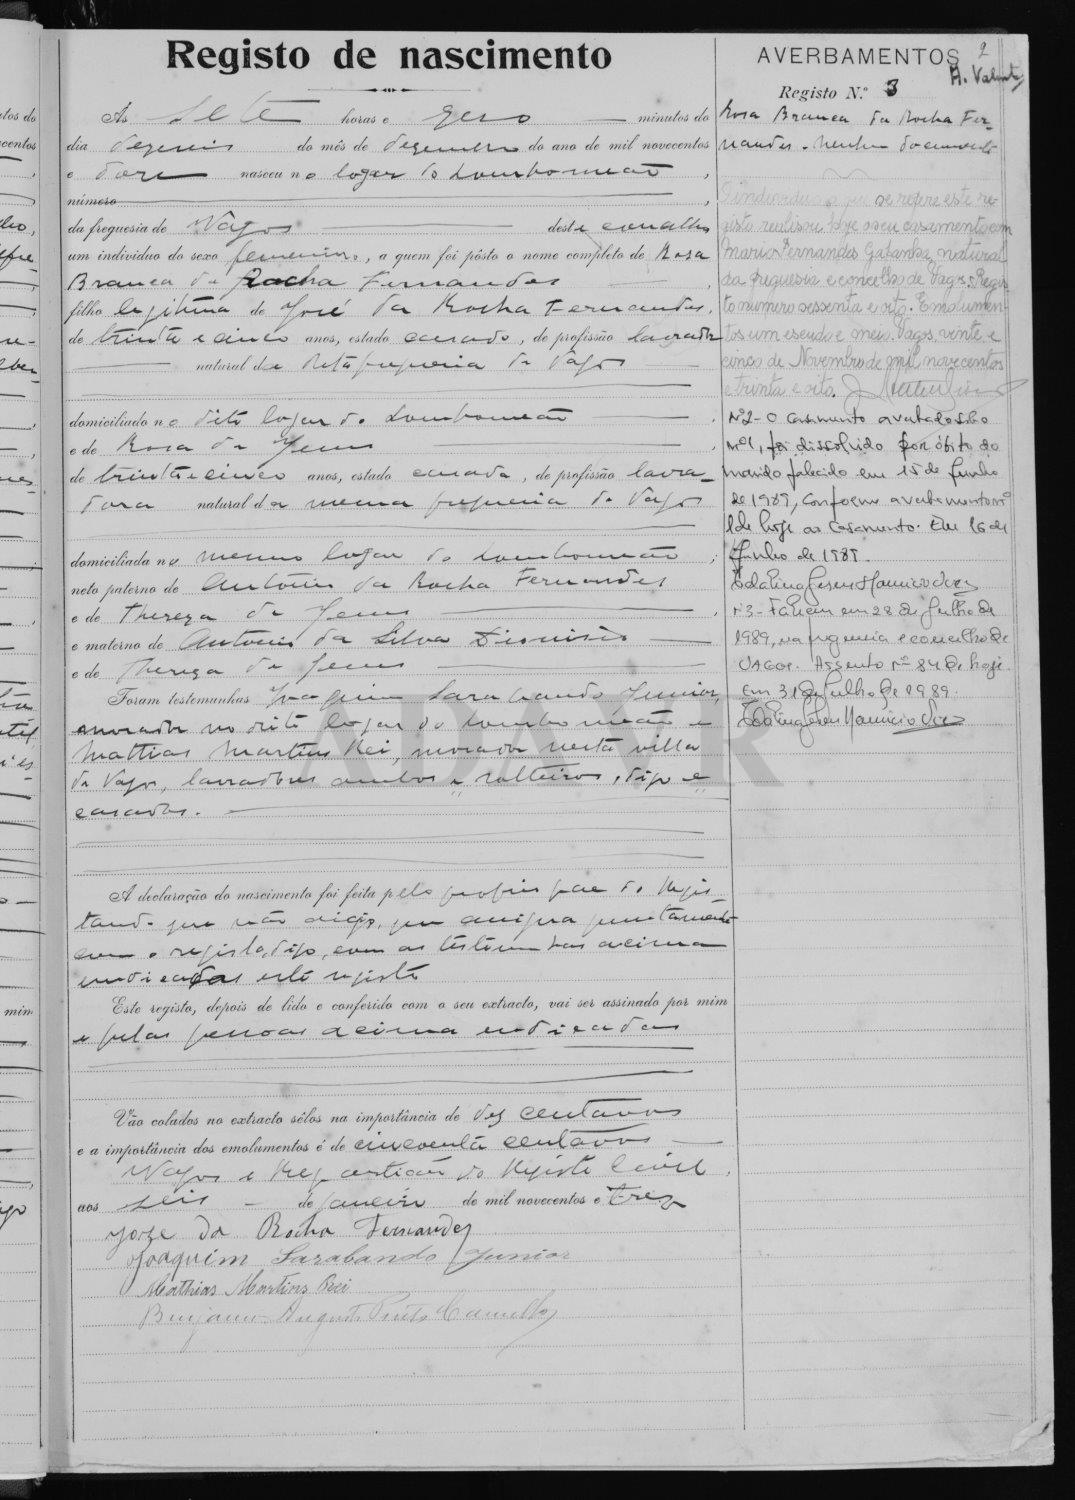 Registo de nascimento
Ás sete horas e zero minutos do
dia dezenis do mês de dezembro do ano de mil novecentos
e doze nasceu no logar do Lombomeão
número
da freguesia de Vagos deste concelho
um individuo do sexo femenino, a quem foi pôsto o nome completo de Rosa
Branca da Rocha Fernandes
filho legitima de José da Rocha Fernandes,
de trinta e cinco anos, estado casado, de profissão lavrador
natural da dita freguesia de Vagos
domiciliado no dito logar do Lombomeão
e de Rosa de Jesus
de trinta e cinco anos, estado casada, de profissão lavra-
dora natural da mesma freguesia de Vagos
domiciliada no mesmo logar do Lombomeão
neto paterno de António da Rocha Fernandes
e de Thereza de Jesus
e materno de Antonio da Silva Dionisio
e de Thereza de Jesus
Foram testemunhas Joaquim Sarabando Junior,
morador no dito logar do Lombomeão e
Mathias Martins Rei, morador nesta villa
de Vagos, lavradores ambos e solteiros, digo e
casados.
A declaração do nascimento foi feita pelo proprio pae do regis
tando que não digo, que assigna juntamente
com o registo, digo, com as testemunhas acima
indicadas este registo
Este registo, depois de lido e conferido com o seu extracto, vai ser assinado por mim
e pelas pessoas acima indicadas
Vão colados no extracto sêlos na importância de dez centavos
e a importância dos emolumentos é de cincoenta centavos
Vagos e Repartição do Registo Civil,
aos seis de janeiro de mil novecentos e trez
José da Rocha Fernandes
Joaquim Sarabando Junior
Mathias Martins Rei
Benjamim Augusto Camello
AVERBAMENTOS
2
Registo N.º 3
Rosa Branca da Rocha Fer-
nandes. Nenhum documento
O individuo a que se refere este re-
gisto realisou hoje o seu casamento com
Mario Fernandes Gafanha, natural
da freguesia e concelho de Vagos. Regis-
to numero sessenta e oito. Emolumen-
tos um escudo e meio. Vagos, vinte e
cinco de Novembro de mil novecentos
e trinta e oito.
Nº2 - O casamento averbado sob o
nº1, foi dissolvido por óbito do
marido falecido em 15 de Junho
de 1989, conforme averbamento nº
1 de hoje ao casamento. Em 16 de
Junho de 1989.
Nº3 - Faleceu em 28 de Julho de
1989, na freguesia e concelho de
VAGOS. Assento nº 84 de hoje.
Em 31 de Julho de 1989.
ADAVR